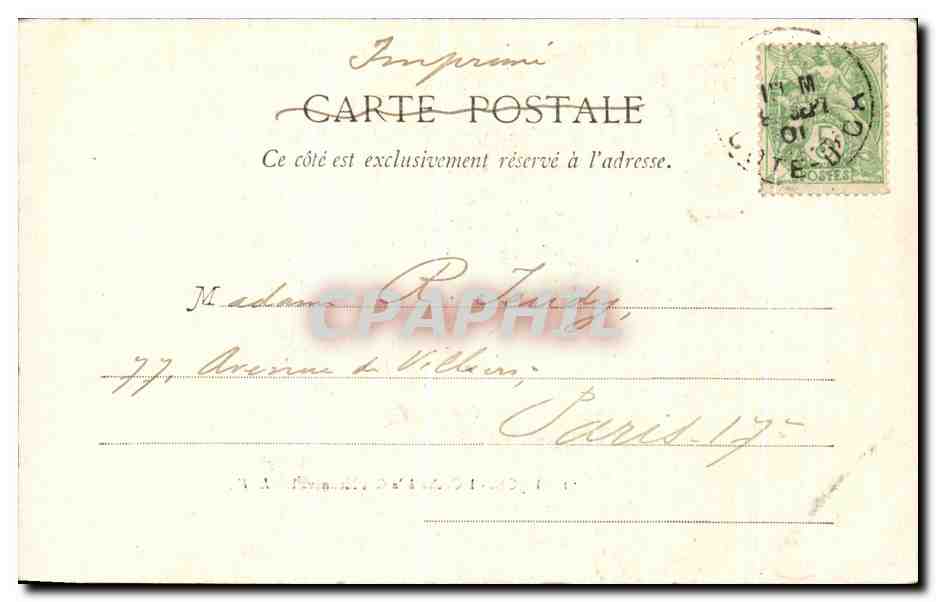 Imprimé
CARTE POSTALE
Ce côté est exclusivement réservé à l'adresse.
SEPT
01
5
POSTES
Madame R. Judy,
CPAPHIL
77, Avenue de Villiers,
Paris-17e